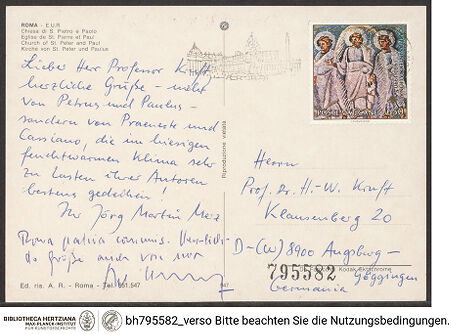 ROMA - E.U.R
Chiesa di S. Pietro e Paolo
Eglise de St. Pierre et Paul
Church of St. Peter and Paul
Kirche von St. Peter und Paulus
Lieber Herr Professor Kruft,
herzliche Grüße – nicht
von Petrus und Paulus –
sondern von Praeneste und
Cassiano, die im hiesigen
feuchtwarmen Klima sehr
zu Lasten ihrer Autoren
bestens gedeihen!
Ihr Jörg Martin Merz
Roma patria communis.
Grüße auch von
Ed. ris. A. R. - Roma - Tel. 551.547
947
Riproduzione vietata
POSTE VATICANE
Herrn
Prof. Dr. H.-W. Kruft
Klausenberg 20
D-(W) 8900 Augsburg-
Göggingen
Germania
795582
Kodak Ektachrome
BIBLIOTHECA HERTZIANA
MAX-PLANCK-INSTITUT
FÜR KUNSTGESCHICHTE
bh795582_verso Bitte beachten Sie die Nutzungsbedingungen.